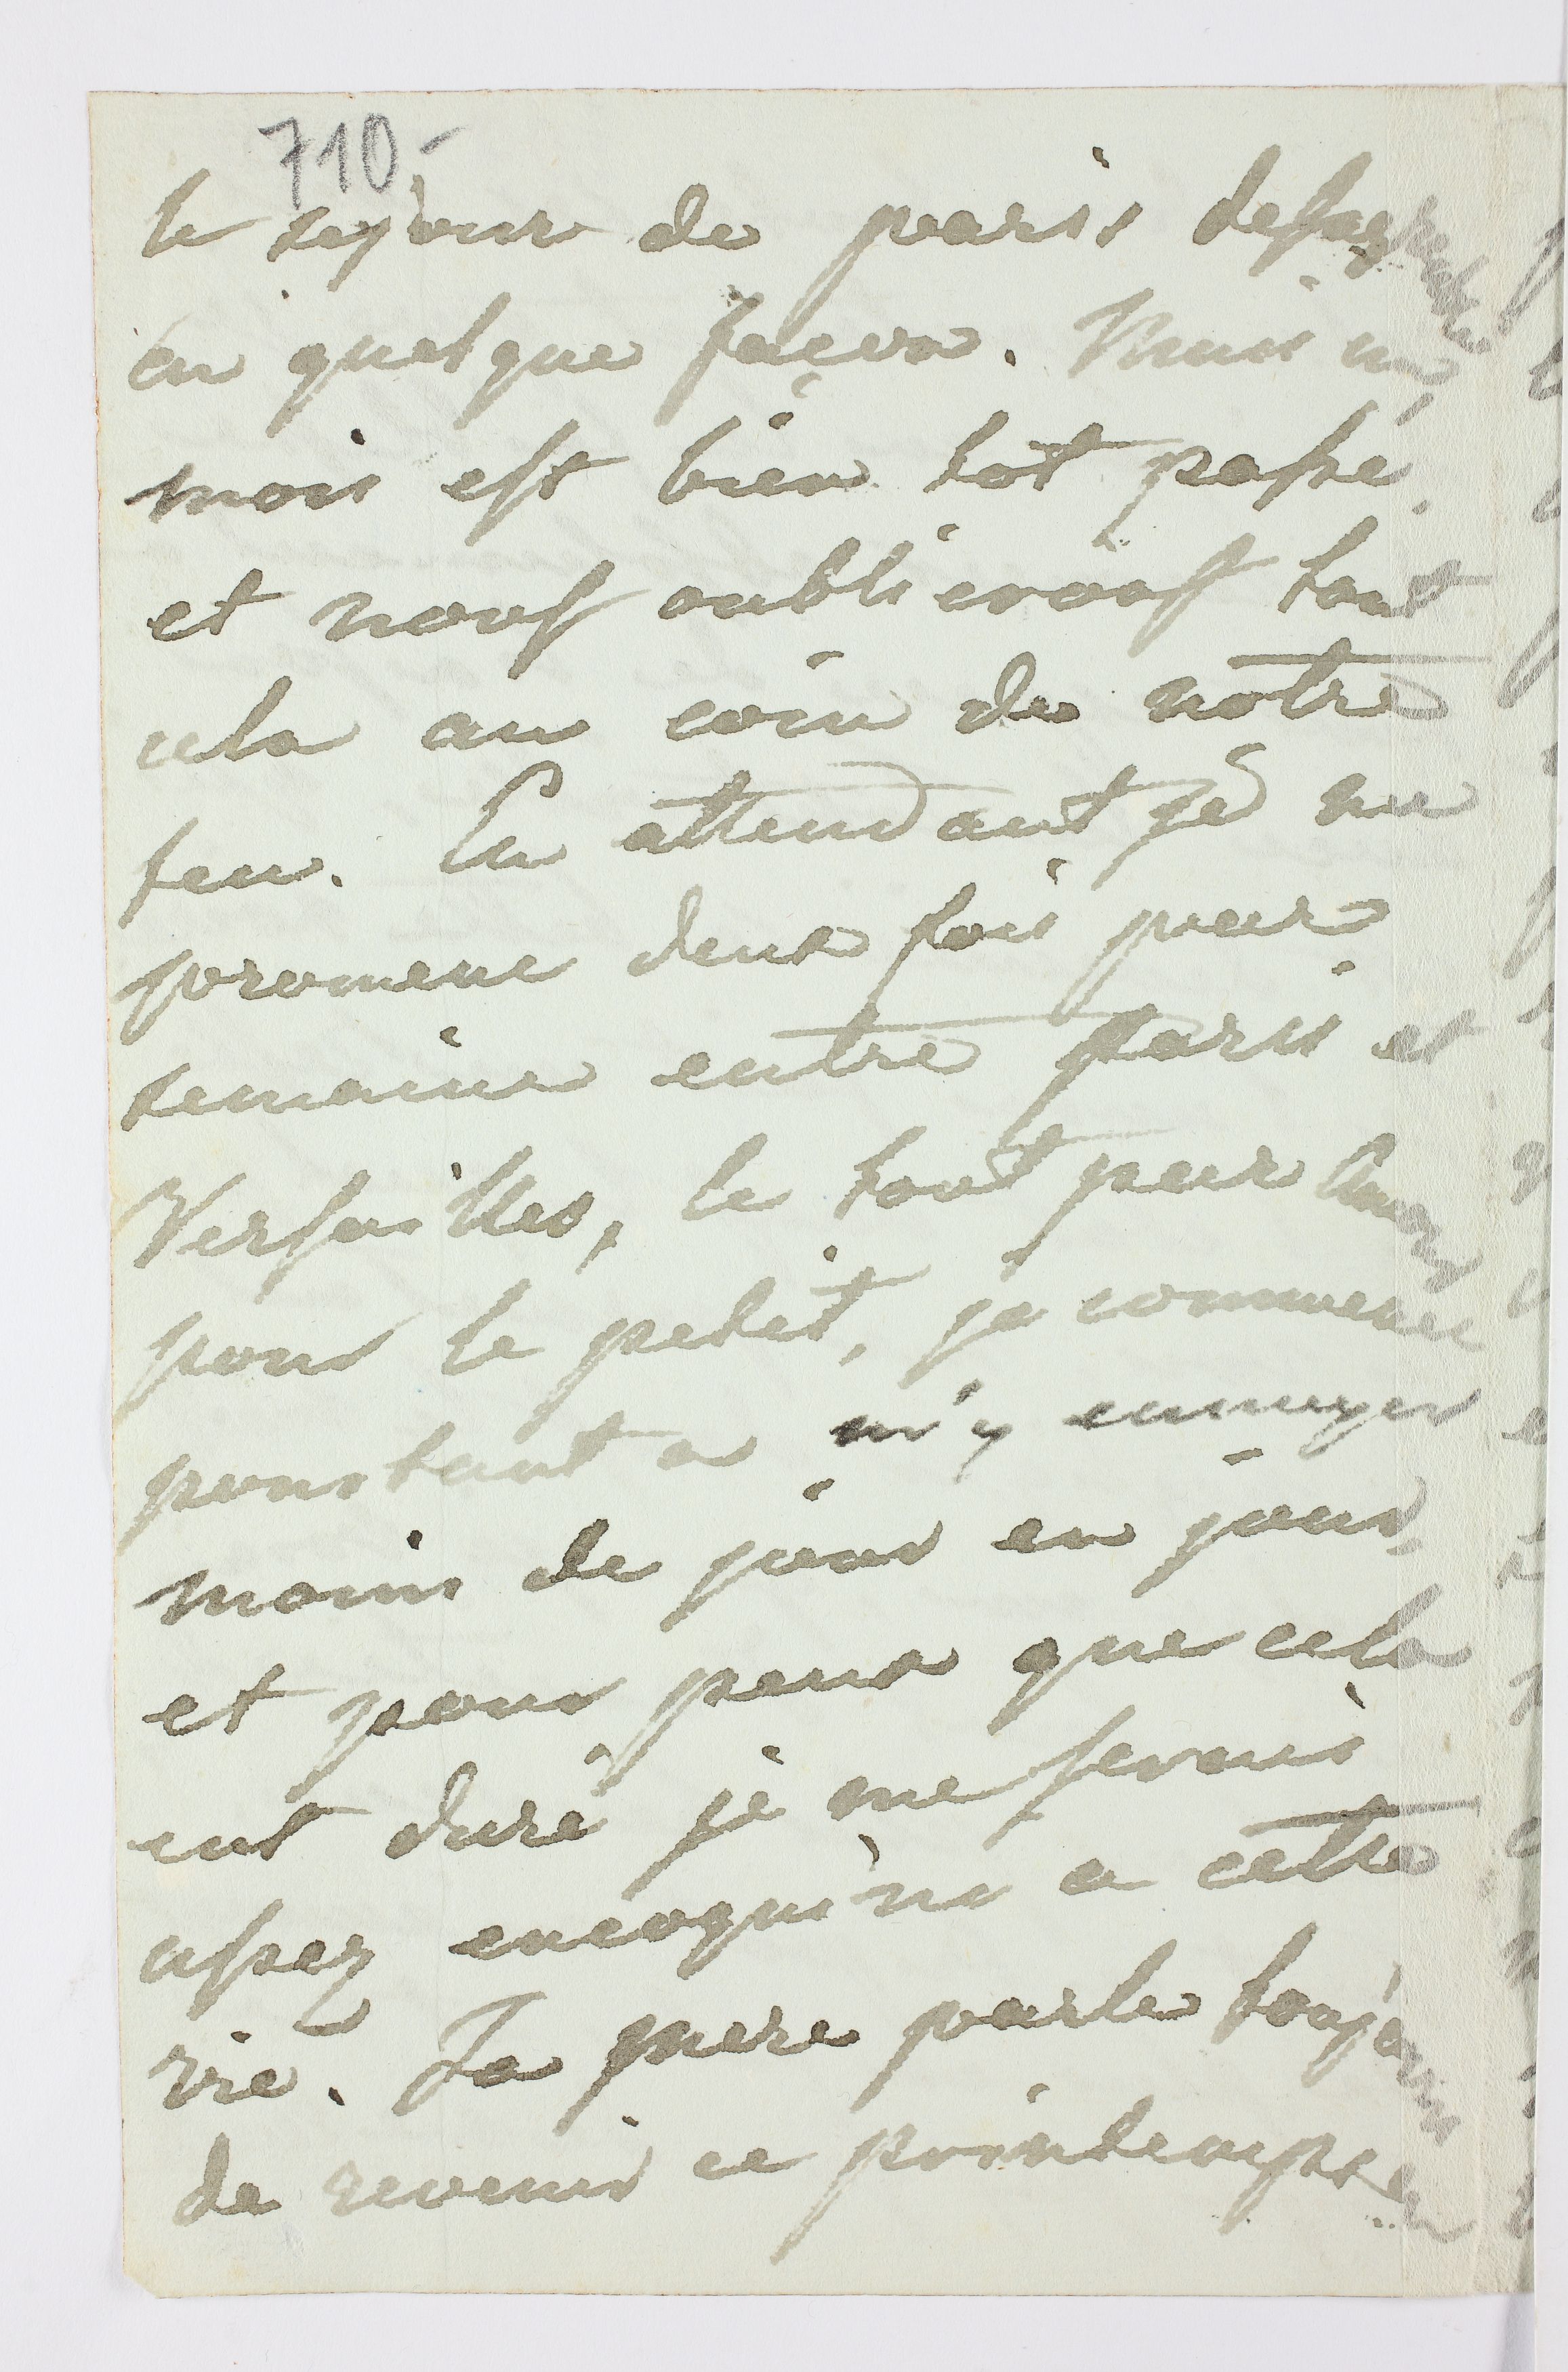 710-
le sejour de paris desagreable
en quelque façon. Mais un
mois est bien tot passé,
et nous oublierons tout
cela au coin de notre
feu. En attendant je me
promene deux fois par
semaine entre Paris et
Versailles, le tout par amour
pour le petit, je commence
pourtant a m'y ennuyer
moins de jour en jour,
et pour peux que cela
eut duré je me serais
assez encoquiné a cette
vie. Ta mere parle toujours
de revenir ce printemps en